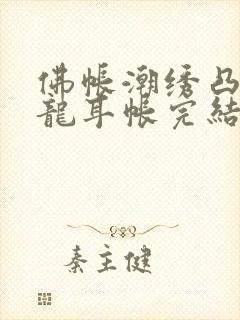 佛帐潮绣凸
龍耳帐完結
秦主健